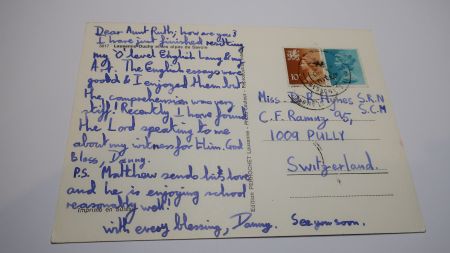 Dear Aunt Ruth, how are you?
I have just finished resitting
5017 Lausanne-Ouchy et les alpes de Savoie
my 'O' level English Lang Exam
The English essays were
good & I enjoyed them but
the comprehension was very
stiff! Recently I have found
the Lord speaking to me
about my witness for Him. God
Bless, Danny.
P.S. Matthew sends his love
and he is enjoying school
reasonably well!
Imprimé en Suisse
with every blessing, Danny. See you soon.
Edition PERROCHET Lausanne
10
Miss D. R. Hynes S.R.N
S.C.M
C.F. Ramuz 95,
1009 PULLY
Switzerland.